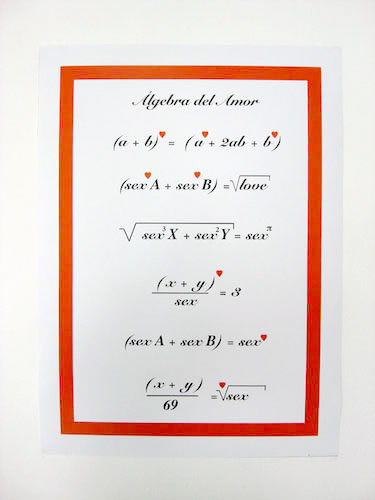 Álgebra del Amor
(a + b)♥ = (a♥ + 2ab + b♥)
(sex♥A + sex♥B) = √love
√sex³X + sex²Y = sexπ
(x + y)♥/sex = 3
(sex A + sex B) = sex♥
(x + y)/69 = ♥√sex